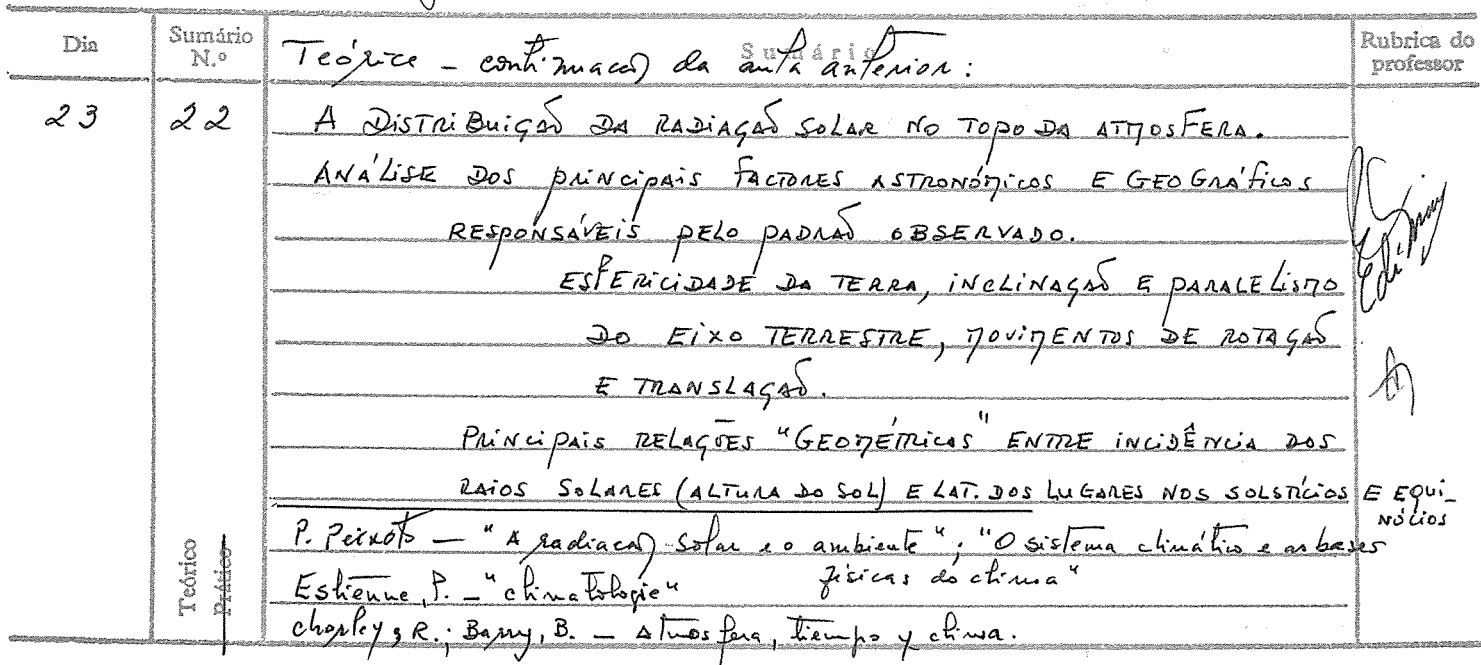 Dia
Sumário N.º
Sumário
Rubrica do professor
Teórica - continuação da aula anterior:
23 22 A DISTRIBUIÇÃO DA RADIAÇÃO SOLAR NO TOPO DA ATMOSFERA.
ANÁLISE DOS PRINCIPAIS FACTORES ASTRONÓMICOS E GEOGRÁFICOS
RESPONSÁVEIS PELO PADRÃO OBSERVADO.
ESFERICIDADE DA TERRA, INCLINAÇÃO E PARALELISMO
DO EIXO TERRESTRE, MOVIMENTOS DE ROTAÇÃO
E TRANSLAÇÃO.
PRINCIPAIS RELAÇÕES "GEOMÉTRICAS" ENTRE INCIDÊNCIA DOS
RAIOS SOLARES (ALTURA DO SOL) E LAT. DOS LUGARES NOS SOLSTÍCIOS E EQUI-
NÓCIOS
P. Peixoto — "A radiação solar e o ambiente"; "O sistema climático e as bases
físicas do clima"
Estienne, P. - "climatologie"
Chorley, R.; Barry, B. — Atmosfera, tiempo y clima.
Teórico
Prático